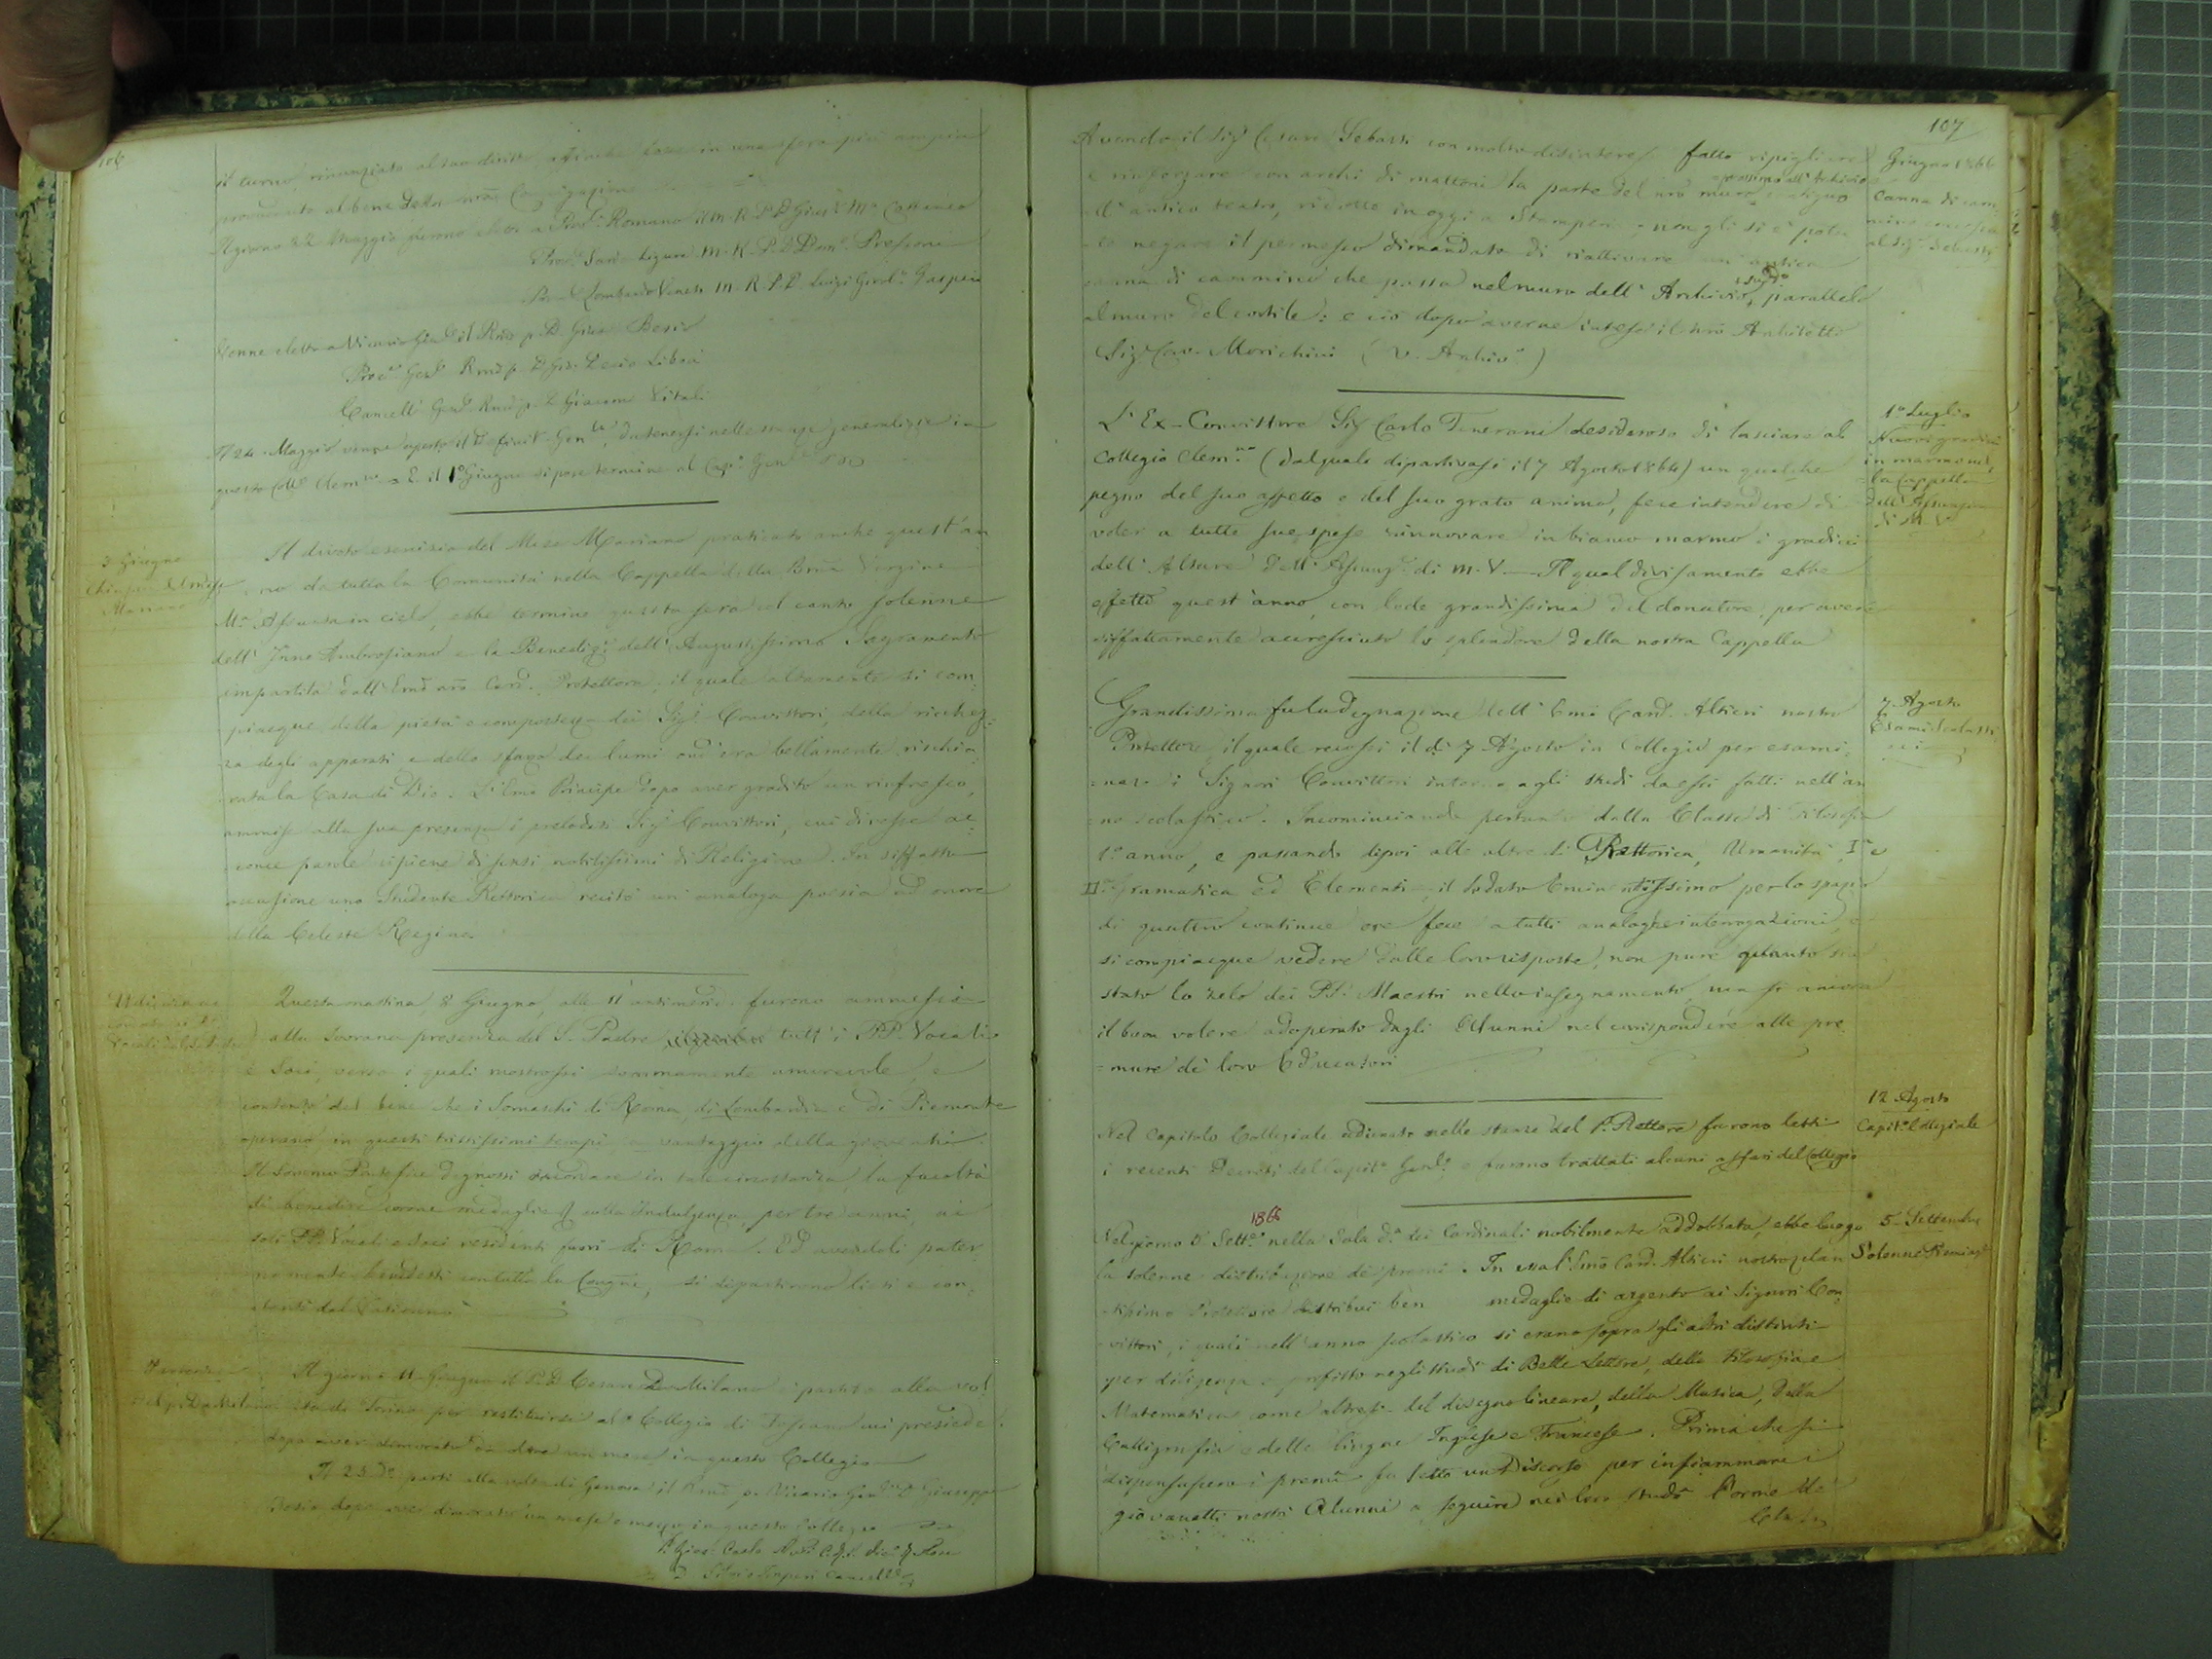 106
il turno, rinunziato al suo diritto, affinchè in una sfera più ampia
provveduto al bene della nrã Congregazione
Il giorno 22 Maggio furono eletti a Prov.le Romano il M. R. P. D. Gius.e M.a Cattaneo
Prov. Sardo Ligure M. R. P. D. Dom.o Pressoni
Prov. Lombardo Veneto M. R. P. D. Luigi Girol.o Gaspari
Venne eletto a Vicario Gen.le il Rmõ p. D. Gius. Besio
Proc.re Gen.le Rmõ p. D. Gio. Decio Libois
Cancell.e Gen.le Rmõ p. D. Giacomo Vitali
Il 24 Maggio venne aperto il Definit.o Gen.le, da tenersi nelle stanze generalizie in
questo Coll.o Clem.no e il 1.o Giugno si pose termine al Cap.o Gen.le
3 Giugno
Chiusura del mese
Mariano
Il divoto esercizio del Mese Mariano praticato anche quest'an
no da tutta la Comunità nella Cappella della Bmã Vergine
M.a Assunta in cielo, ebbe termine questa sera col canto solenne
dell'Inno Ambrosiano e la Benediz.e dell'Augustissimo Sagramento
impartita dall'Emõ nrõ Card. Protettore, il quale altamente si com=
piacque della pietà e compostezza dei Sig.i Convittori, della ricchez=
za degli apparati e dello sfarzo dei lumi ond'era bellamente rischia
rata la Casa di Dio. L'Emõ Principe dopo aver gradito un rinfresco,
ammise alla sua presenza i prelodati Sig.i Convittori, cui diresse ac=
conce parole ripiene di sensi nobilissimi di Religione. In siffatta
occasione uno Studente Rettorica recitò un'analoga poesia ad onore
della Celeste Regina.
Udienza ac
cordata ai PP.
Vocali dal S. Padre
Questa mattina, 8 Giugno, alle 11 antimerid. furono ammessi
alla Sovrana presenza del S. Padre tutt'i PP. Vocali
e Soci, verso i quali mostrossi sommamente amorevole, e
contento del bene che i Somaschi di Roma, di Lombardia e di Piemonte
operano in questi tristissimi tempi a vantaggio della gioventù.
Il Sommo Pontefice degnossi accordare in tale circostanza, la facoltà
di benedire corone medaglie colla Indulgenza, per tre anni, ai
soli PP. Vocali e Soci residenti fuori di Roma. Ed avendoli pater
namente benedetti con tutta la Congne, si dipartirono lieti e con=
tenti dal Vaticano
Partenza
del p. De Milano
Il giorno 11 Giugno il P. D. Cesare De Milano è partito alla vol
ta di Torino per restituirsi al Collegio di cui presiede,
dopo aver dimorato un mese in questo Collegio
Il 25 d.o partì alla volta di Genova il Rmõ p. Vicario Gen.le D. Giuseppe
Besio dopo aver dimorato un mese e mezzo in questo Collegio
P. Gio: Carlo
D. Silvio Imperi Cancell.e
107
Avendo il Sig.r Cesare Sebasti con molto disinteresse fatto ripigliare
e rinforzare con archi di mattoni la parte del nrõ muro contiguo
prossimo all'Archivio
all'antico teatro, ridotto in oggi a Stamperia, non gli si è potu
to negare il permesso dimandato di riattivare un'antica
canna di cammino che passa nel muro dell'Archivio sud.o, parallelo
al muro del cortile: e ciò dopo averne inteso il nrõ Architetto
Sig.r Cav. Morichini (V. Archiv.o)
Giugno 1866
Canna di cam
mino concessa
al Sig.r Sebasti
L'Ex-Convittore Sig.r Carlo Tenerani desideroso di lasciare al
Collegio Clem.no (dal quale dipartivasi il 7 Agosto 1864) un qualche
pegno del suo affetto e del suo grato animo, fece intendere di
voler a tutte sue spese rinnovare in bianco marmo i gradini
dell'Altare dell'Assunz.e di M. V. — Il qual divisamento ebbe
effetto quest'anno, con lode grandissima del donatore, per avere
siffattamente accresciuto lo splendore della nostra Cappella
1.o Luglio
Nuovi gradini
in marmo nel
la Cappella
dell'Assunzione
di M. V.
Grandissima fu la degnazione dell'Emõ Card. Altieri nostro
Protettore, il quale recossi il dì 7 Agosto in Collegio per esami=
nare i Signori Convittori intorno agli studi da essi fatti nell'an
no scolastico. Incominciando pertanto dalla Classe di Filosofia
1.o anno, e passando dipoi alle altre di Rettorica, Umanità, I.a e
II.a Gramatica ed Elementi, il lodato Eminentissimo per lo spazio
di quattro continue ore fece a tutti analoghe interrogazioni, e
si compiacque vedere dalle loro risposte, non pure quanto sia
stato lo zelo dei PP. Maestri nello insegnamento, ma sì ancora
il buon volere adoperato dagli Alunni nel corrispondere alle pre
mure de' loro Educatori
7 Agosto
Esami Scolasti
ci
Nel Capitolo Collegiale adunato nelle stanze del P. Rettore furono letti
i recenti Decreti del Capit.o Gen.le e furono trattati alcuni affari del Collegio
12 Agosto
Capit.o Collegiale
1866
Nel giorno 5 Sett.e nella Sala d.a dei Cardinali nobilmente addobbata, ebbe luogo
la solenne distribuzione de' premi. In essa l'Emõ Card. Altieri nostro zelan
tissimo Protettore distribuì ben medaglie di argento ai Signori Con
vittori, i quali nell'anno scolastico si erano sopra gli altri distinti
per diligenza e profitto negli studi di Belle Lettere, della Filosofia e
Matematica come altresì del disegno lineare, della Musica, della
Calligrafia e delle lingue Inglese e Francese. Prima che si
dispensassero i premii fu letto un Discorso per infiammare i
giovanetti nostri Alunni a seguire nei loro studi l'orme de'
5 Settembre
Solenne Premiaz.e